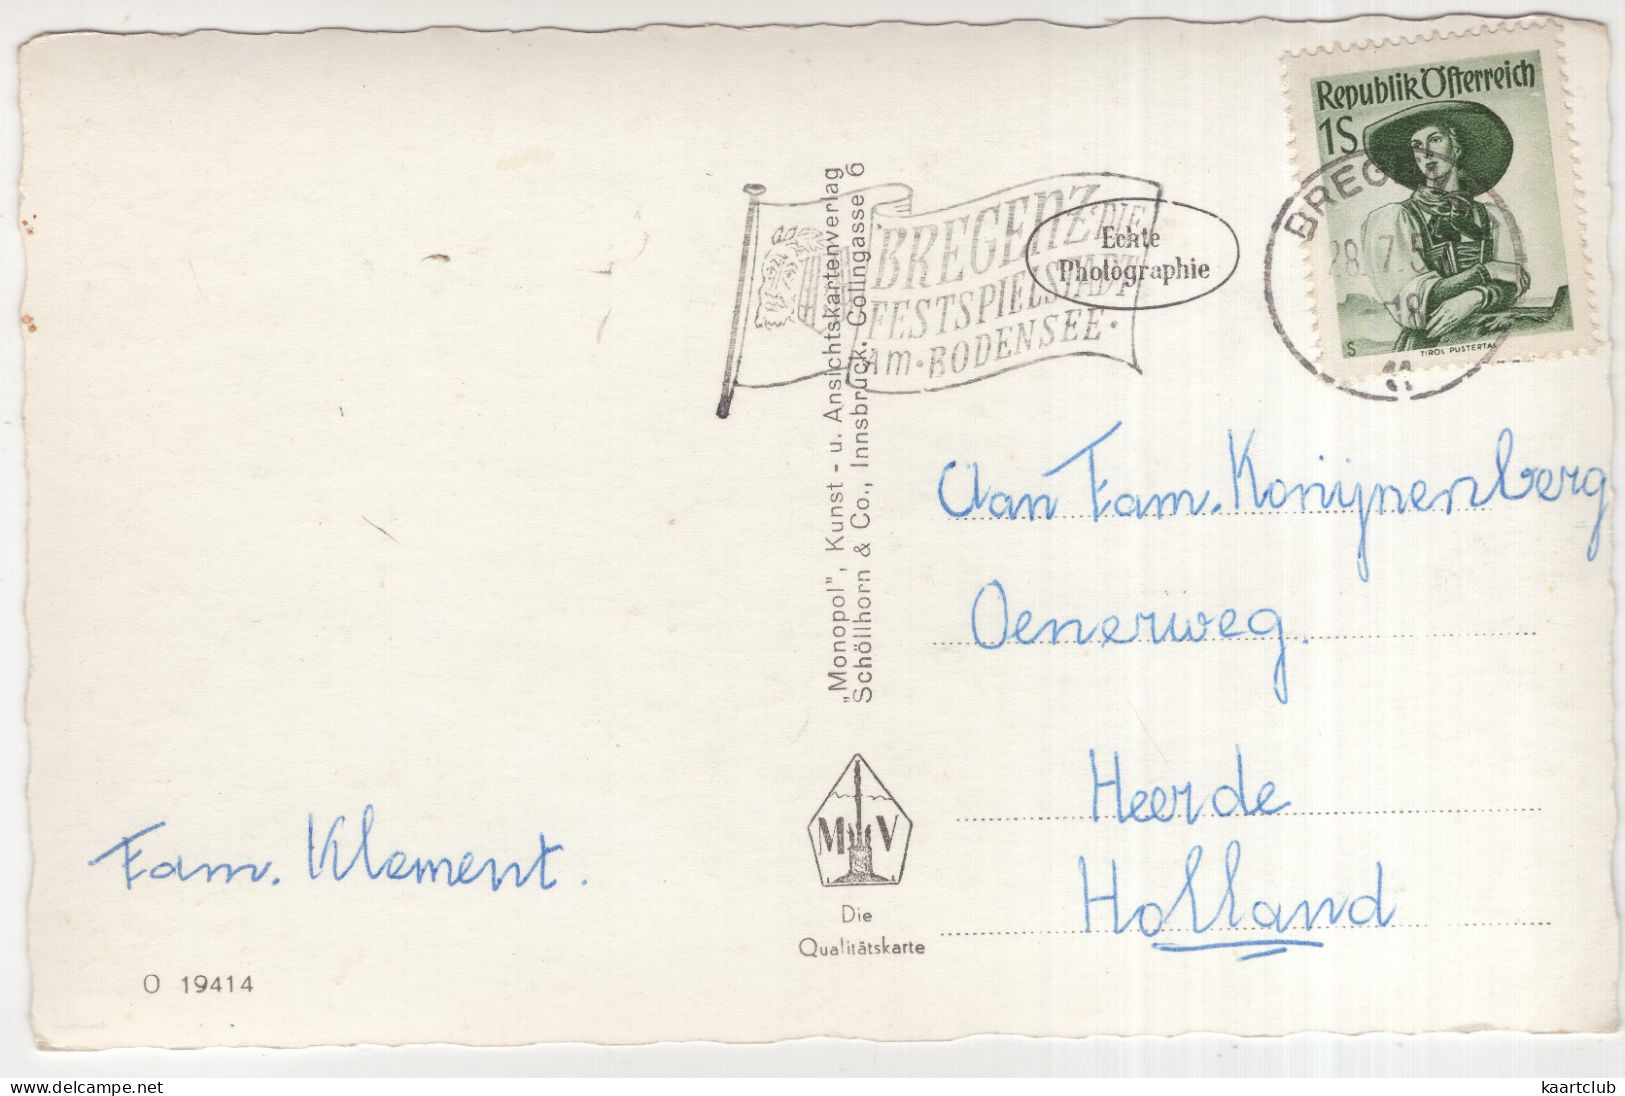 Republik Österreich
1S
S TIROL PUSTERTAL
BREGENZ
28. 7. 5
- 18
BREGENZ DIE
FESTSPIELSTADT
AM · BODENSEE ·
Echte
Photographie
"Monopol", Kunst- u. Ansichtskartenverlag
Schöllhorn & Co., Innsbruck. Colingasse 6
Aan Fam. Konijnenberg
Oenerweg.
Heerde
Holland
Fam. Klement.
M V
Die
Qualitätskarte
O 19414
www.delcampe.net
kaartclub